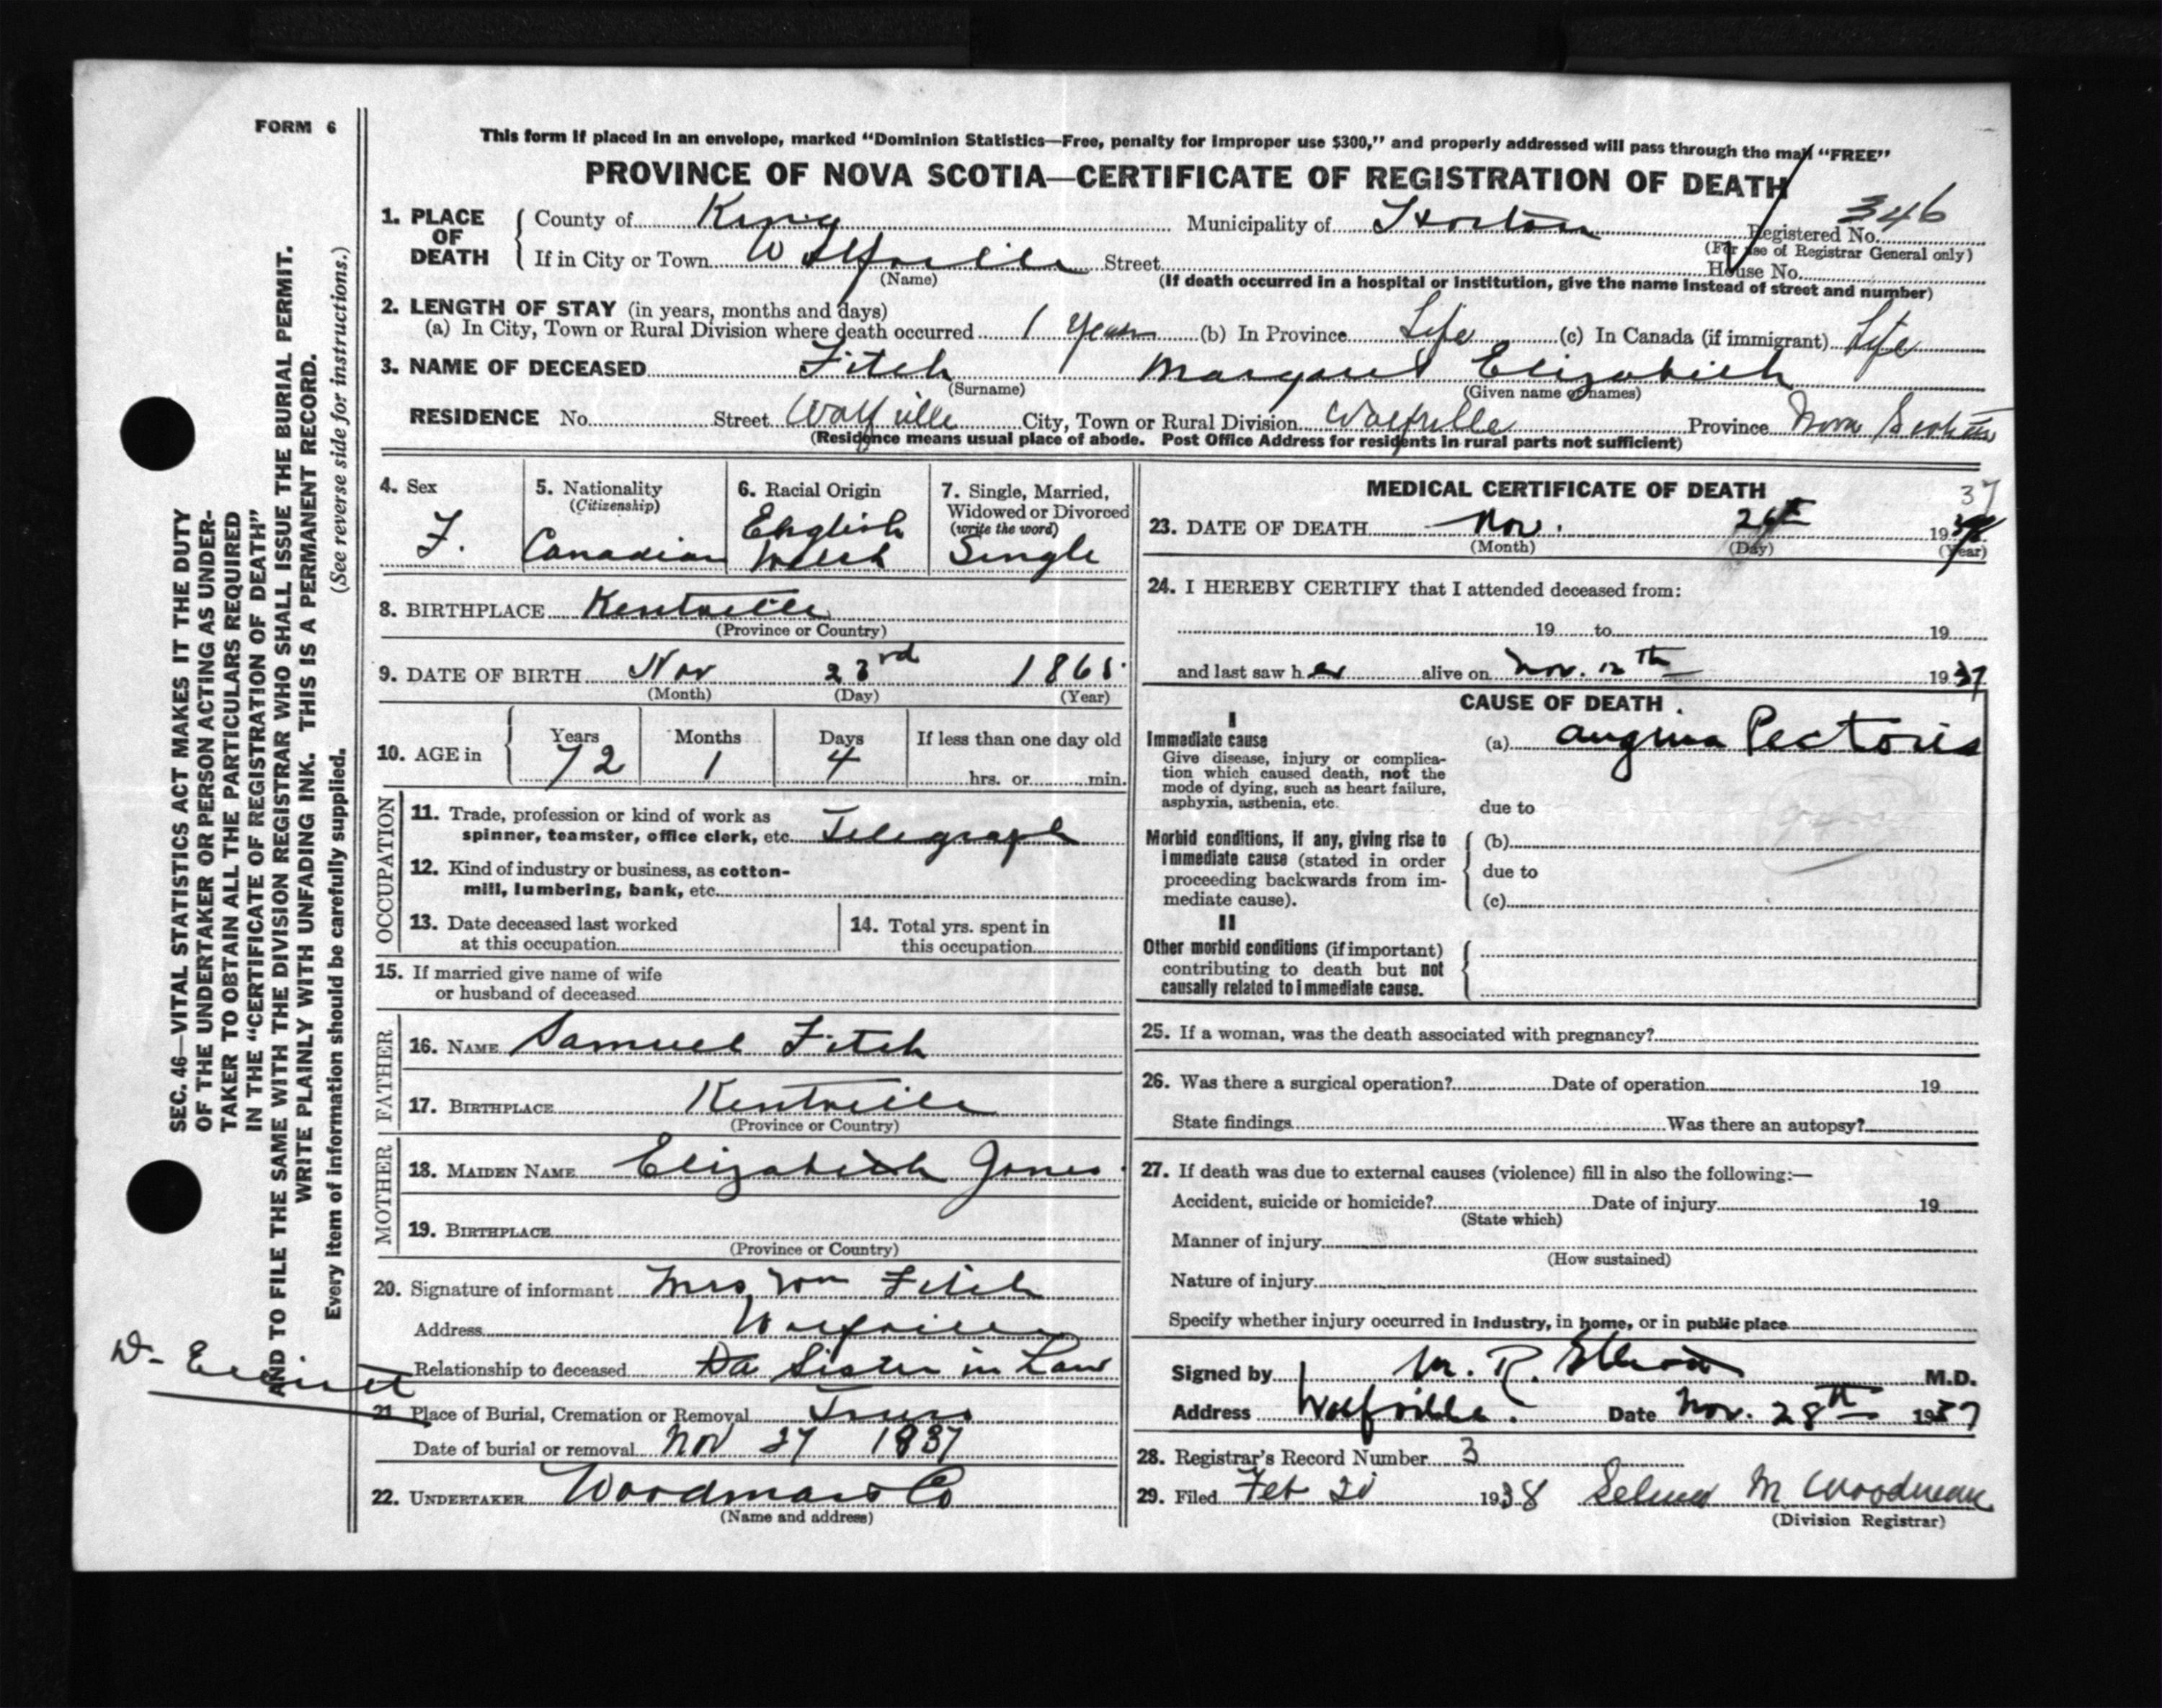 FORM 6
This form if placed in an envelope, marked "Dominion Statistics—Free, penalty for improper use $300," and properly addressed will pass through the mail "FREE"
PROVINCE OF NOVA SCOTIA—CERTIFICATE OF REGISTRATION OF DEATH
1. PLACE OF DEATH County of Kings Municipality of Horton Registered No. 346
(For use of Registrar General only)
If in City or Town Wolfville Street House No.
(Name) (If death occurred in a hospital or institution, give the name instead of street and number)
2. LENGTH OF STAY (in years, months and days)
(a) In City, Town or Rural Division where death occurred 1 Year (b) In Province Life (c) In Canada (if immigrant) Life
3. NAME OF DECEASED Fitch Margaret Elizabeth
(Surname) (Given name or names)
RESIDENCE No. Street Wolfville City, Town or Rural Division Wolfville Province Nova Scotia
(Residence means usual place of abode. Post Office Address for residents in rural parts not sufficient)
4. Sex F.
5. Nationality (Citizenship) Canadian
6. Racial Origin English Welsh
7. Single, Married, Widowed or Divorced (write the word) Single
8. BIRTHPLACE Kentville
(Province or Country)
9. DATE OF BIRTH Nov 23rd 1865
(Month) (Day) (Year)
10. AGE in Years 72 Months 1 Days 4 If less than one day old
hrs. or min.
OCCUPATION
11. Trade, profession or kind of work as
spinner, teamster, office clerk, etc. Telegraph
12. Kind of industry or business, as cotton-
mill, lumbering, bank, etc.
13. Date deceased last worked
at this occupation
14. Total yrs. spent in
this occupation
15. If married give name of wife
or husband of deceased
FATHER
16. NAME Samuel Fitch
17. BIRTHPLACE Kentville
(Province or Country)
MOTHER
18. MAIDEN NAME Elizabeth Jones
19. BIRTHPLACE
(Province or Country)
20. Signature of informant Mrs Wm Fitch
Address Wolfville
Relationship to deceased Sister in Law
21. Place of Burial, Cremation or Removal Truro
Date of burial or removal Nov 27 1937
22. UNDERTAKER Woodmans Co
(Name and address)
MEDICAL CERTIFICATE OF DEATH
37
23. DATE OF DEATH Nov. 26th 19
(Month) (Day) (Year)
24. I HEREBY CERTIFY that I attended deceased from:
19 to 19
and last saw her alive on Nov. 12th 1937
CAUSE OF DEATH
I
Immediate cause (a) Angina Pectoris
Give disease, injury or complica-
tion which caused death, not the
mode of dying, such as heart failure,
asphyxia, asthenia, etc.
due to
Morbid conditions, if any, giving rise to (b)
immediate cause (stated in order
proceeding backwards from im- due to
mediate cause). (c)
II
Other morbid conditions (if important)
contributing to death but not
causally related to immediate cause.
25. If a woman, was the death associated with pregnancy?
26. Was there a surgical operation? Date of operation 19
State findings Was there an autopsy?
27. If death was due to external causes (violence) fill in also the following:—
Accident, suicide or homicide? Date of injury 19
(State which)
Manner of injury
(How sustained)
Nature of injury
Specify whether injury occurred in industry, in home, or in public place
Signed by M. R. Elliott M.D.
Address Wolfville. Date Nov. 28th 1937
28. Registrar's Record Number 3
29. Filed Feb 1938 M. Woodman
(Division Registrar)
SEC. 46—VITAL STATISTICS ACT MAKES IT THE DUTY
OF THE UNDERTAKER OR PERSON ACTING AS UNDER-
TAKER TO OBTAIN ALL THE PARTICULARS REQUIRED
IN THE "CERTIFICATE OF REGISTRATION OF DEATH"
AND TO FILE THE SAME WITH THE DIVISION REGISTRAR WHO SHALL ISSUE THE BURIAL PERMIT.
WRITE PLAINLY WITH UNFADING INK. THIS IS A PERMANENT RECORD.
Every item of information should be carefully supplied. (See reverse side for instructions.)
Dr Elliott